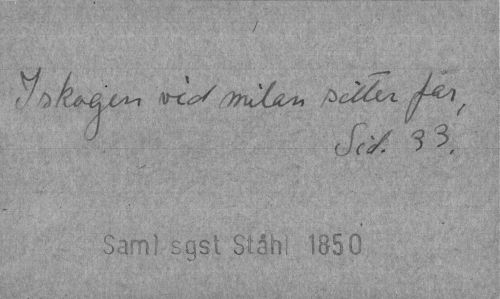 I skogen vid milan sitter far,
Sid. 33.
Saml sgst Ståhl 1850